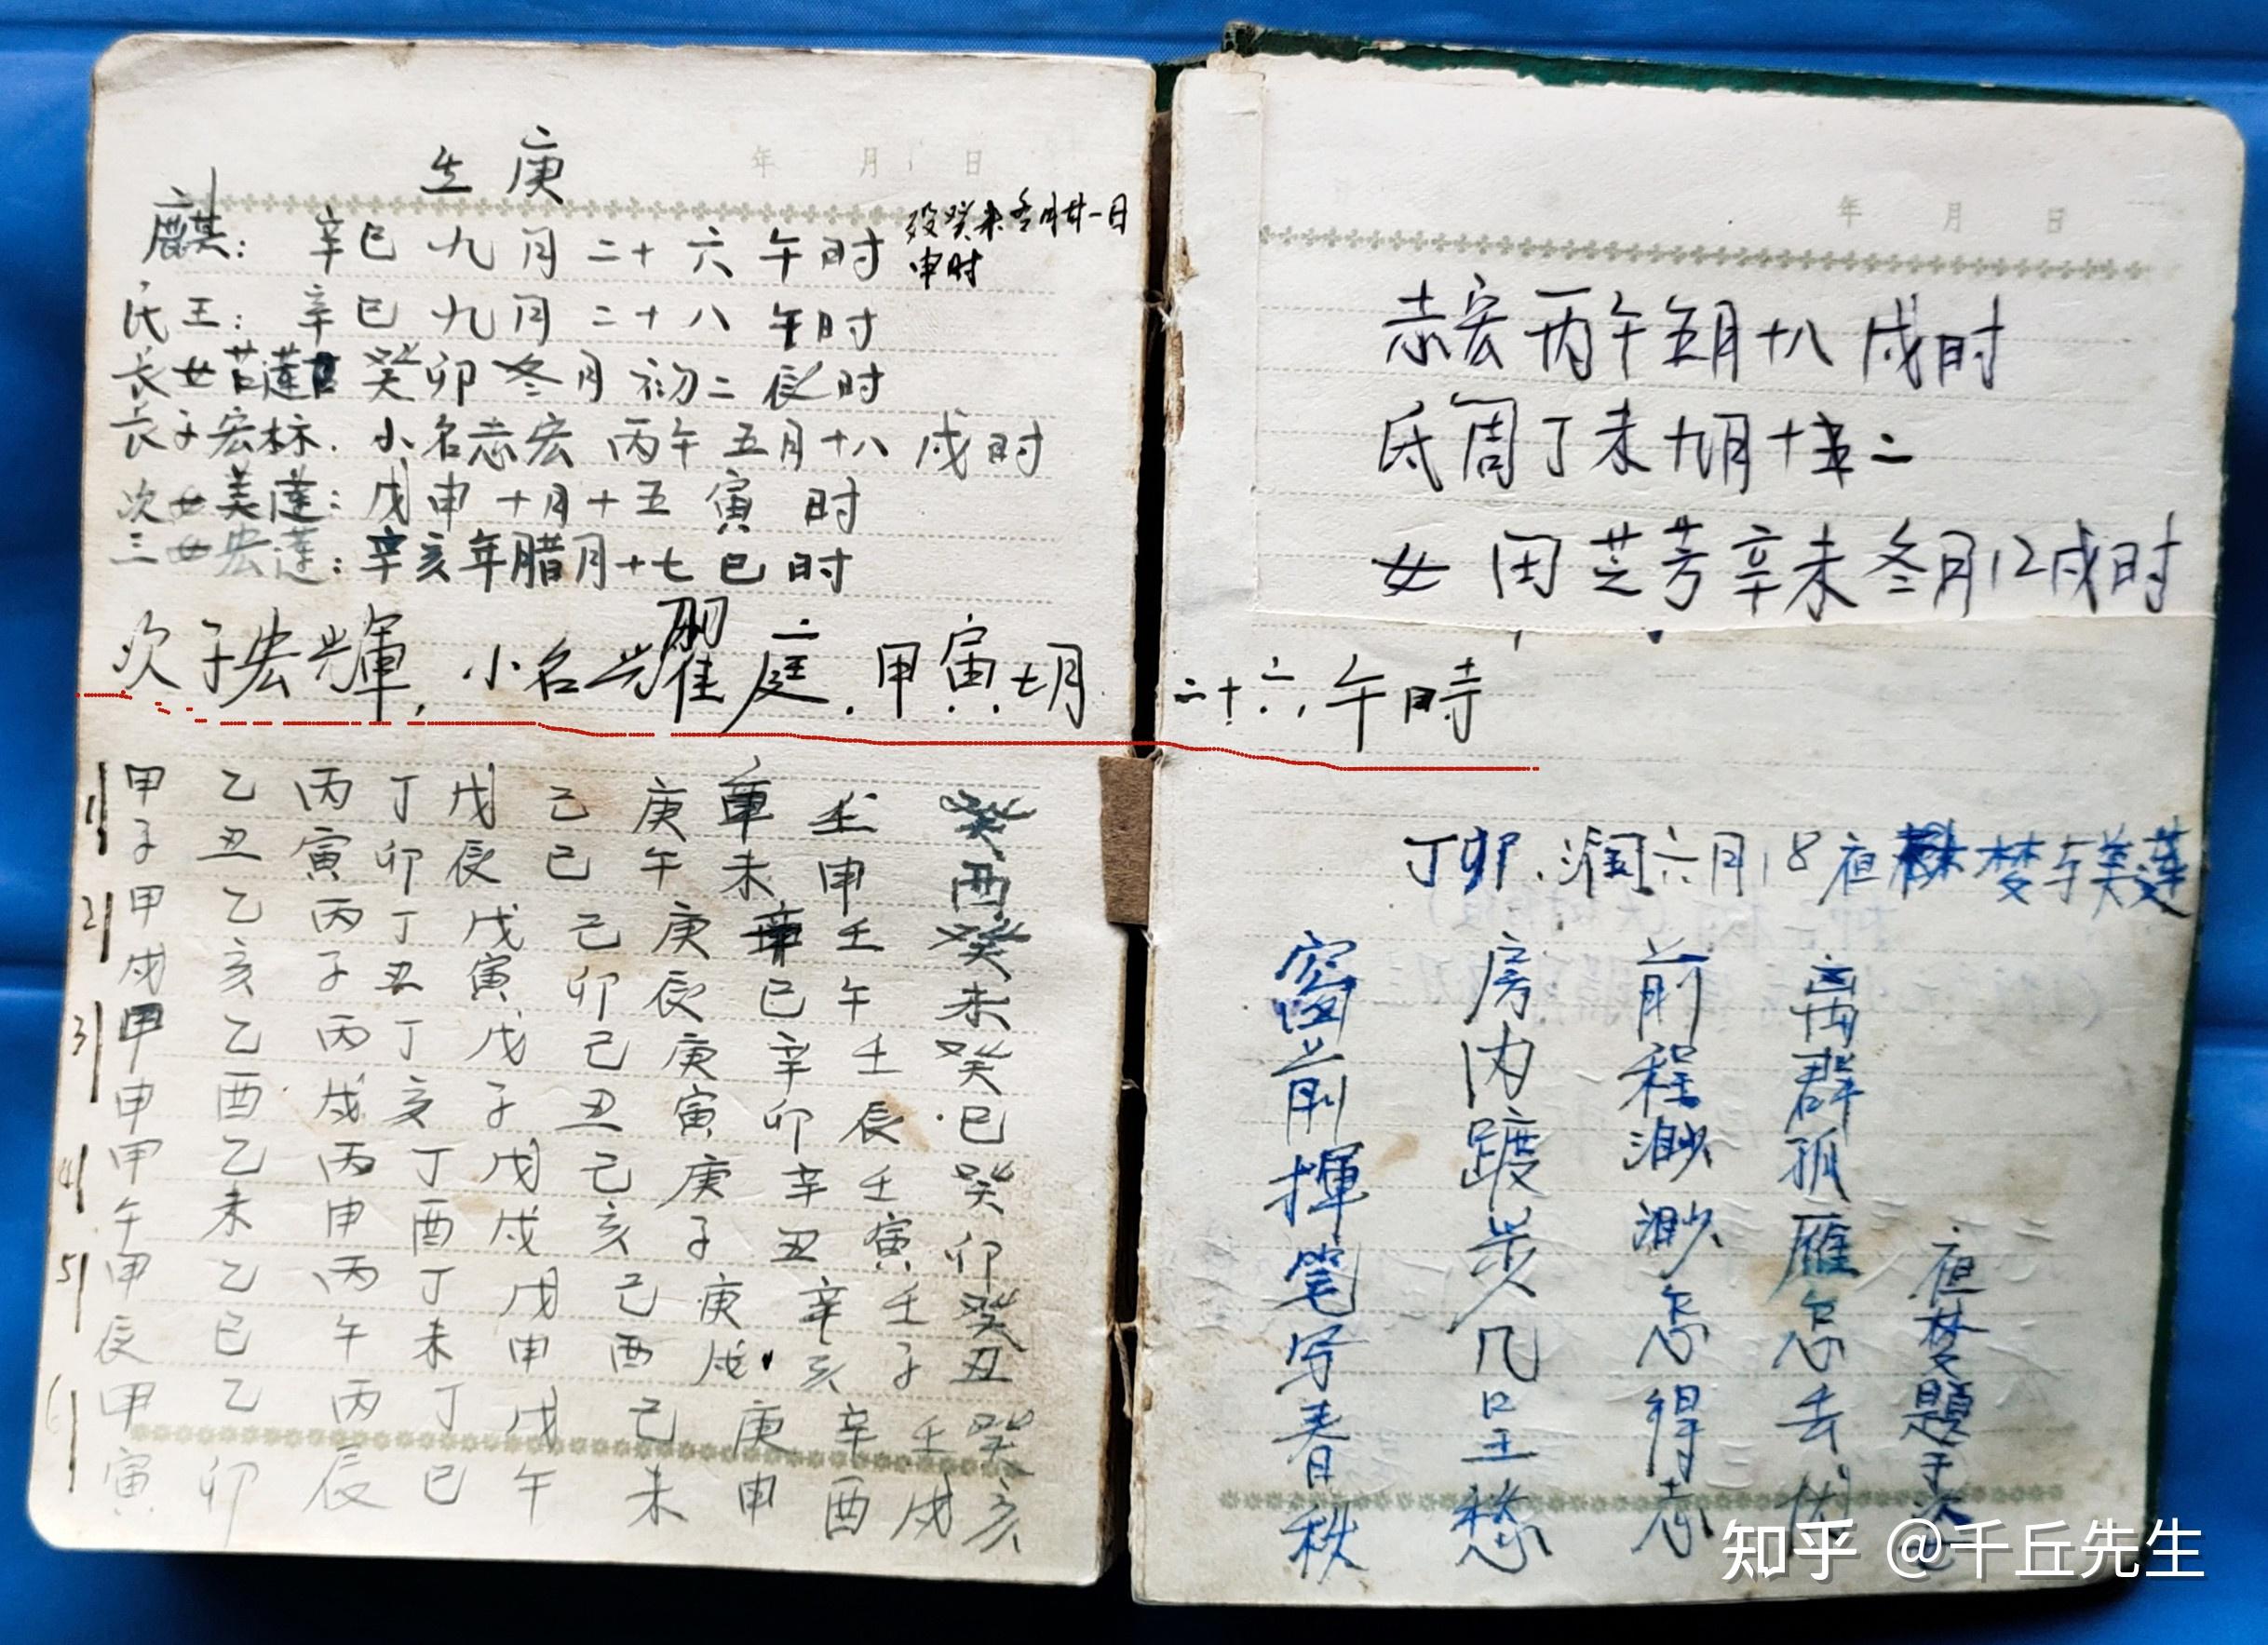 生庚
年 月 日
麒：辛巳 九月二十六 午时 殁癸未冬月廿一日
申时
氏王：辛巳 九月二十八 午时
长女苕莲 癸卯 冬月初二 辰时
长子宏林．小名志宏 丙午五月十八 戌时
次女美莲：戊申十月十五 寅时
三女宏莲：辛亥年腊月十七巳时
次子宏輝，小名耀庭．甲寅七月二十六，午時
1 甲 乙 丙 丁 戊 己 庚 辛 壬 癸
子 丑 寅 卯 辰 巳 午 未 申 酉
2 甲 乙 丙 丁 戊 己 庚 辛 壬 癸
戌 亥 子 丑 寅 卯 辰 巳 午 未
3 甲 乙 丙 丁 戊 己 庚 辛 壬 癸
申 酉 戌 亥 子 丑 寅 卯 辰 巳
4 甲 乙 丙 丁 戊 己 庚 辛 壬 癸
午 未 申 酉 戌 亥 子 丑 寅 卯
5 甲 乙 丙 丁 戊 己 庚 辛 壬 癸
辰 巳 午 未 申 酉 戌 亥 子 丑
6 甲 乙 丙 丁 戊 己 庚 辛 壬 癸
寅 卯 辰 巳 午 未 申 酉 戌 亥
年 月 日
志宏丙午五月十八 戌时
氏周丁未九月十二
女 田芝芳辛未冬月12戌时
丁卯．润六月18夜 梦与美莲
窗前揮笔写春秋
房内踱步几呈愁
前程渺渺怎得志
离群孤雁怎去
夜梦题于
知乎 @千丘先生